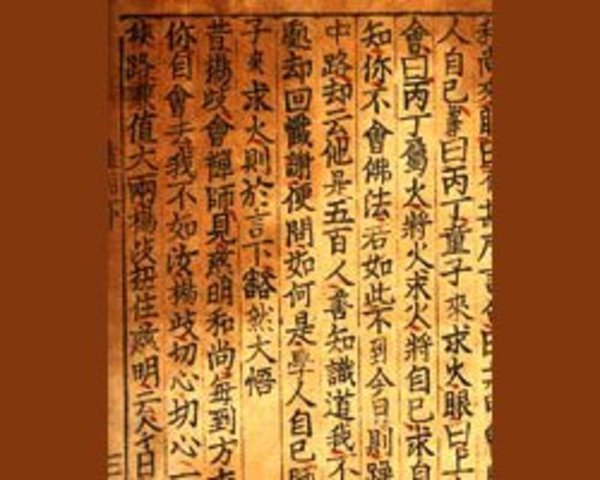 尚來眼曰
人自己 曰丙丁童子來求火眼曰上
會曰丙丁屬火將火求火將自己求自
知你不會佛法若如此不到今日則
中路却云他是五百人善知識道我不
處却回懺謝便問如何是學人自己師
子來求火則於言下豁然大悟
昔楊歧會禪師見慈明和尚每到方
你自會去我不如汝楊歧切心切心一
路 值大雨楊歧扭住慈明 日